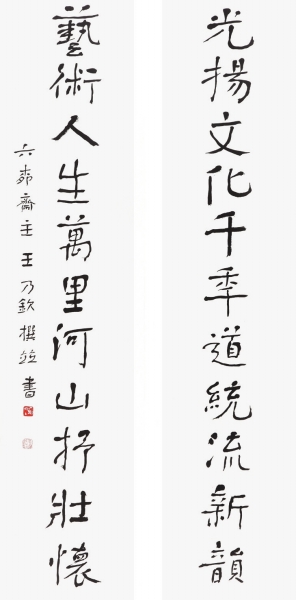 光揚文化千季道統流新韻
藝術人生萬里河山抒壯懷
六㭉齋主王乃欽撰並書